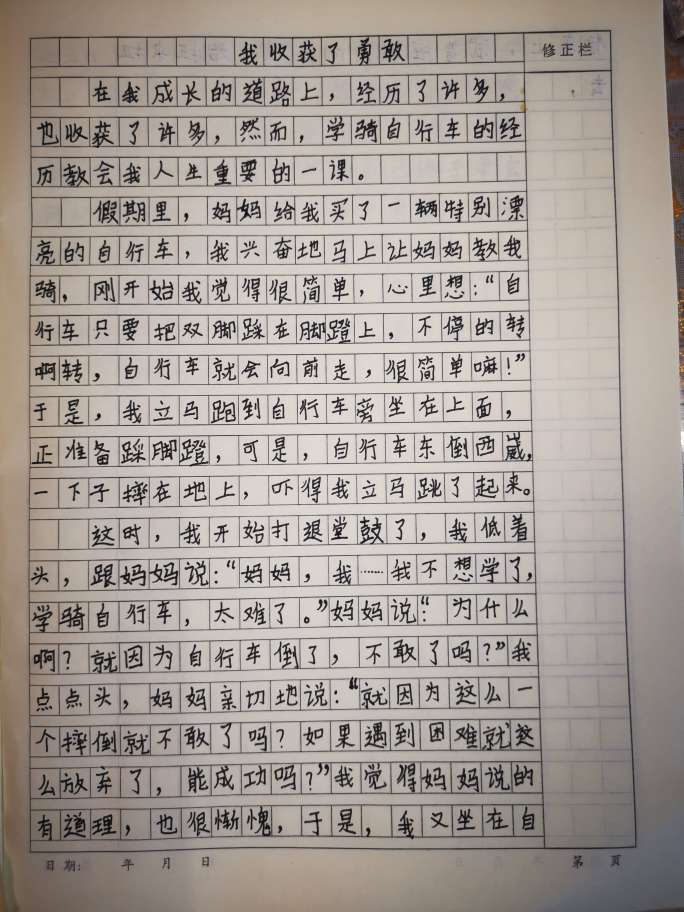 我收获了勇敢
修正栏
在我成长的道路上，经历了许多，
也收获了许多，然而，学骑自行车的经
历教会我人生重要的一课。
假期里，妈妈给我买了一辆特别漂
亮的自行车，我兴奋地马上让妈妈教我
骑，刚开始我觉得很简单，心里想：“自
行车只要把双脚踩在脚蹬上，不停的转
啊转，自行车就会向前走，很简单嘛！”
于是，我立马跑到自行车旁坐在上面，
正准备踩脚蹬，可是，自行车东倒西崴，
一下子摔在地上，吓得我立马跳了起来。
这时，我开始打退堂鼓了，我低着
头，跟妈妈说：“妈妈，我……我不想学了，
学骑自行车，太难了。”妈妈说：“为什么
啊？就因为自行车倒了，不敢了吗？”我
点点头，妈妈亲切地说：“就因为这么一
个摔倒就不敢了吗？如果遇到困难就这
么放弃了，能成功吗？”我觉得妈妈说的
有道理，也很惭愧，于是，我又坐在自
日期：　年　月　日　第　页